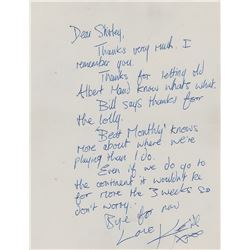 Dear Shirley,
Thanks very much. I
remember you.
Thanks for letting old
Albert Hand know what's what.
Bill says thanks for
the lolly.
'Beat Monthly' knows
more about where we're
playing than I do.
Even if we do go to
the continent it wouldn't be
for more the 3 weeks so
don't worry.
Bye for now
Love Keith
xxx